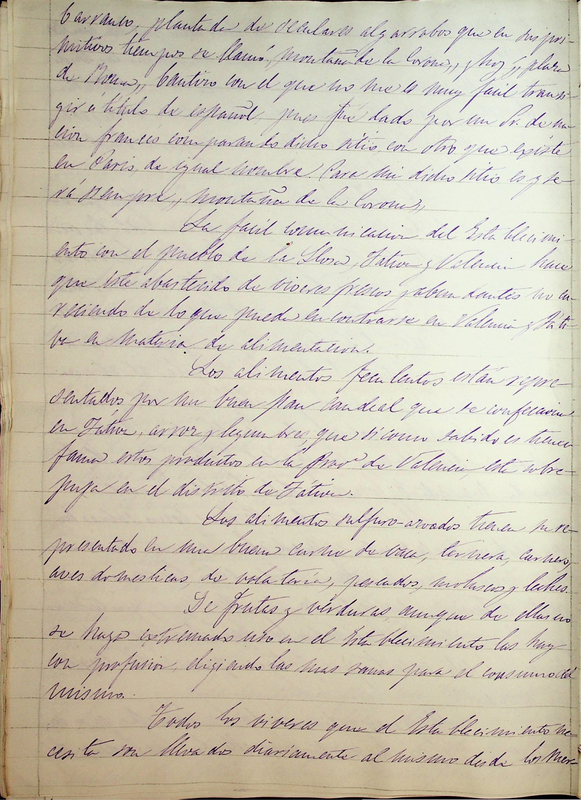 Barranco, plantada de seculares algarrobos que en sus pri-
mitivos tiempos se llamó montaña de la Corona,, y hoy ,, plaza
de Roma,, bautizo con el que no me es muy fácil transi-
gir a título de español pues fué dado por un Sr. de na-
cion frances comparando dicho sitio con otro que existe
en Paris de igual nombre. Para mi dicho sitio es y se-
rá siempre ,, montaña de la Corona,,
La fácil comunicacion del Establecimi-
ento con el pueblo de la Llosa, Játiva y Valencia hace
que este abastecido de víveres frescos y abundantes no ca-
reciendo de lo que puede encontrarse en Valencia y Játi-
va en materia de alimentacion.
Los alimentos feculentos están repre-
sentados por un buen pan candeal que se confecciona
en Játiva, arroz y legumbre, que si como sabido es tienen
fama estos productos en la Prov.ª de Valencia, esta sobre-
puja en el distrito de Játiva.
Los alimentos sulfuro-azoados tienen su re-
presentado en una buena carne de vaca, ternera, carnero,
aves domesticas de volateria, pescados, moluscos y leches.
De frutas y verduras, aunque de ellas no
se haga extremado uso en el Establecimiento las hay
con profusion, eligiendo las mas sanas para el consumo del
mismo.
Todos los viveres que el Establecimiento ne-
cesita son llevados diariamente al mismo desde los Mer-